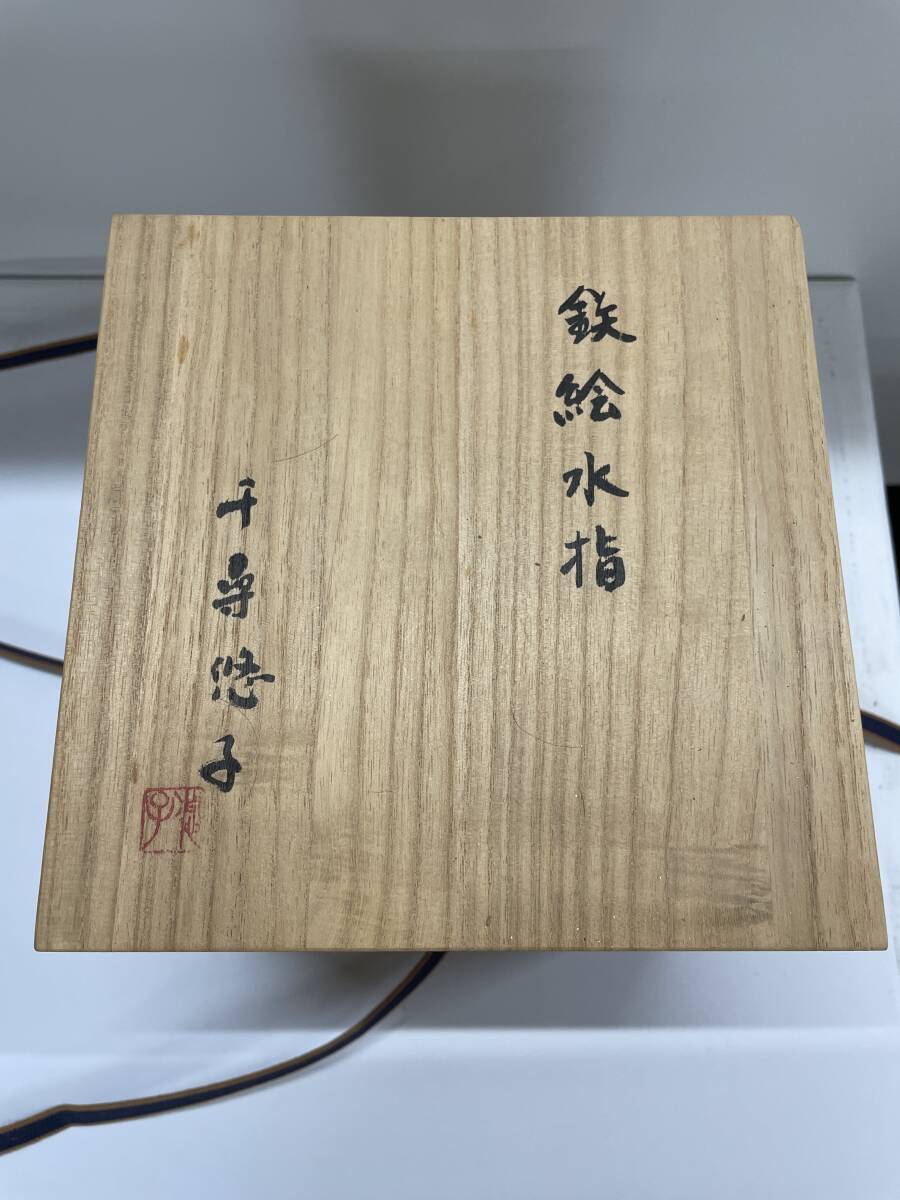 鉄絵水指
千尋悠子